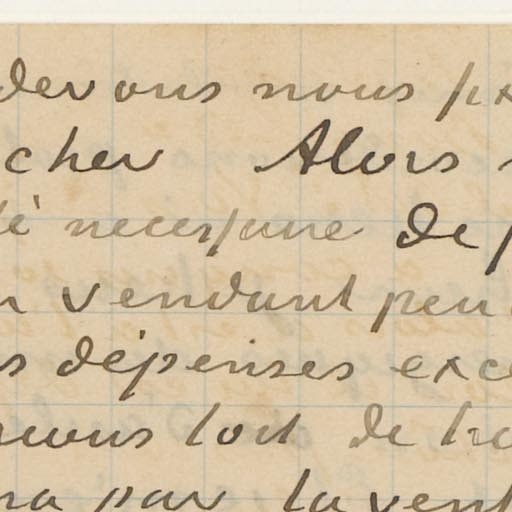 devons nous
cher Alors
necessaire de
vendant peu
dépenses exce
tort de
par la vent